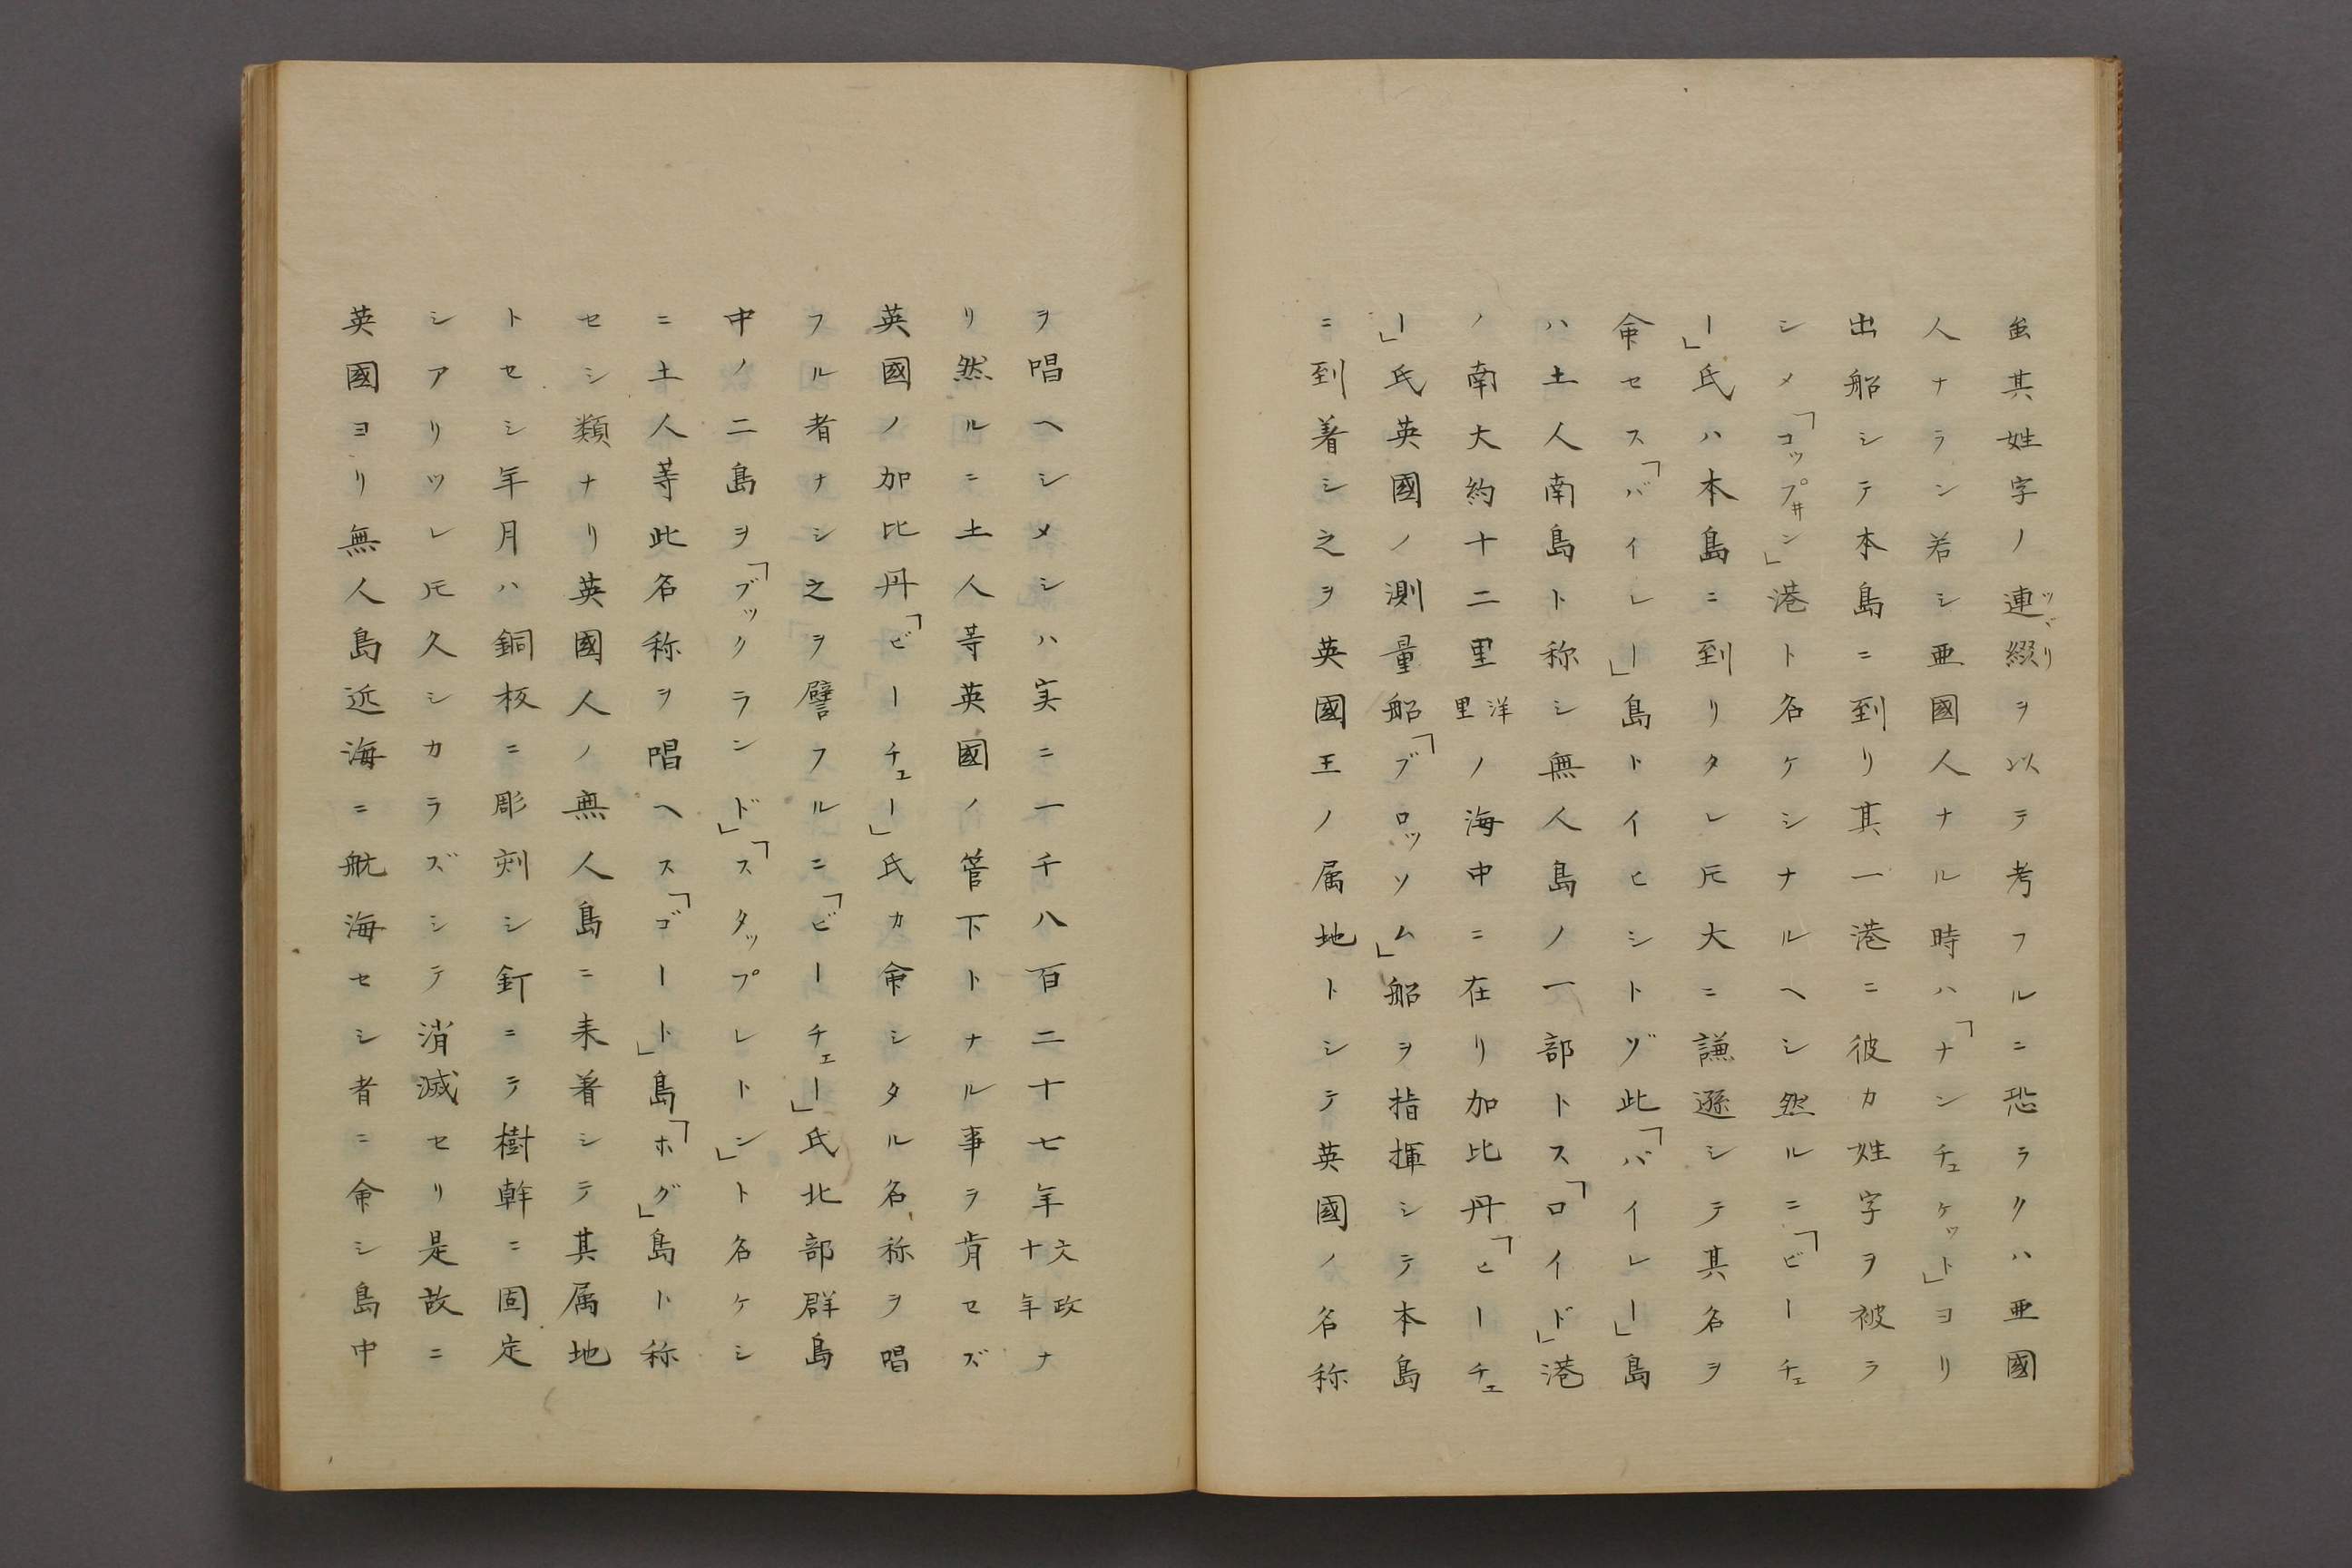 虽其姓字ノ連綴ツヾリヲ以テ考フルニ恐ラクハ亜國
人ナラン若シ亜國人ナル時ハ「ナンチェケット」ヨリ
出船シテ本島ニ到リ其一港ニ彼カ姓字ヲ被ラ
シメ「コップ井ン」港ト名ケシナルヘシ然ルニ「ビーチェ
ー」氏ハ本島ニ到リタレ𪜈大ニ謙遜シテ其名ヲ
命セス「バイレー」島トイヒシトゾ此「バイレー」島
ハ土人南島ト称シ無人島ノ一部トス「ロイド」港
ノ南大約十二里洋里ノ海中ニ在リ加比丹「ビーチェ
ー」氏英國ノ測量船「ブロッソム」船ヲ指揮シテ本島
ニ到着シ之ヲ英國王ノ属地トシテ英國ノ名称
ヲ唱ヘシメシハ実ニ一千八百二十七年文政十年ナ
リ然ルニ土人等英國ノ管下トナル事ヲ肯セズ
英國ノ加比丹「ビーチェー」氏カ命シタル名称ヲ唱
フル者ナシ之ヲ譬フルニ「ビーチェー」氏北部群島
中ノ二島ヲ「ブックランド」「スタップレトン」ト名ケシ
ニ土人等此名称ヲ唱ヘス「ゴート」島「ホグ」島ト称
セシ類ナリ英國人ノ無人島ニ来着シテ其属地
トセシ年月ハ銅板ニ彫刻シ釘ニテ樹幹ニ固定
シアリツレ𪜈久シカラズシテ消滅セリ是故ニ
英國ヨリ無人島近海ニ航海セシ者ニ命シ島中